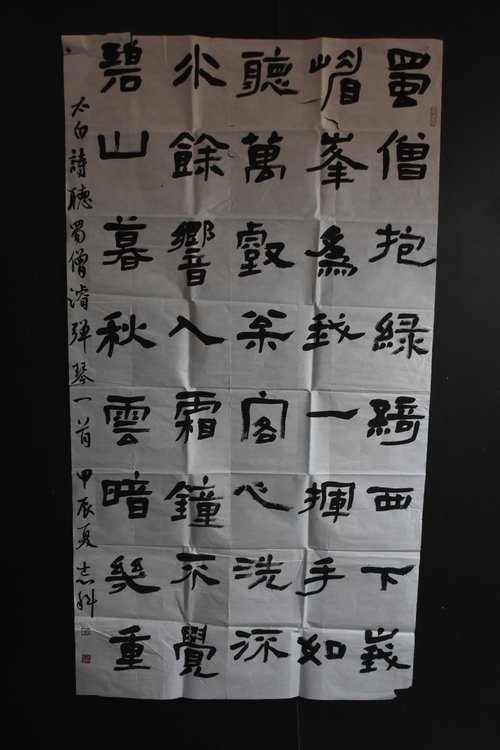 蜀僧抱綠綺西下峩
嵋峯為我一揮手如
聽萬壑枀客心洗流
水餘響入霜鐘不覺
碧山暮秋雲暗幾重
太白詩聽蜀僧濬彈琴一首 甲辰夏志科